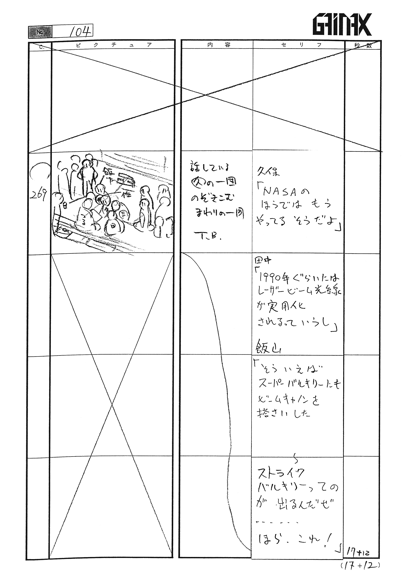 104
GAINAX
C
ピクチュア
内容
セリフ
秒数
269
話している
の一団
のぞきこむ
まわりの一団
T.B.
久保
「NASAの
ほうでは もう
やってる そうだよ」
田中
「1990年ぐらいには
レーザービーム光線
が実用化
されるっていうし」
飯山
「そういえば
スーパーバルキリーにも
ビームキャノンを
搭さいした
ストライク
バルキリーっての
が出るんだぜ
......
ほら、これ!」
17+12
(17+12)